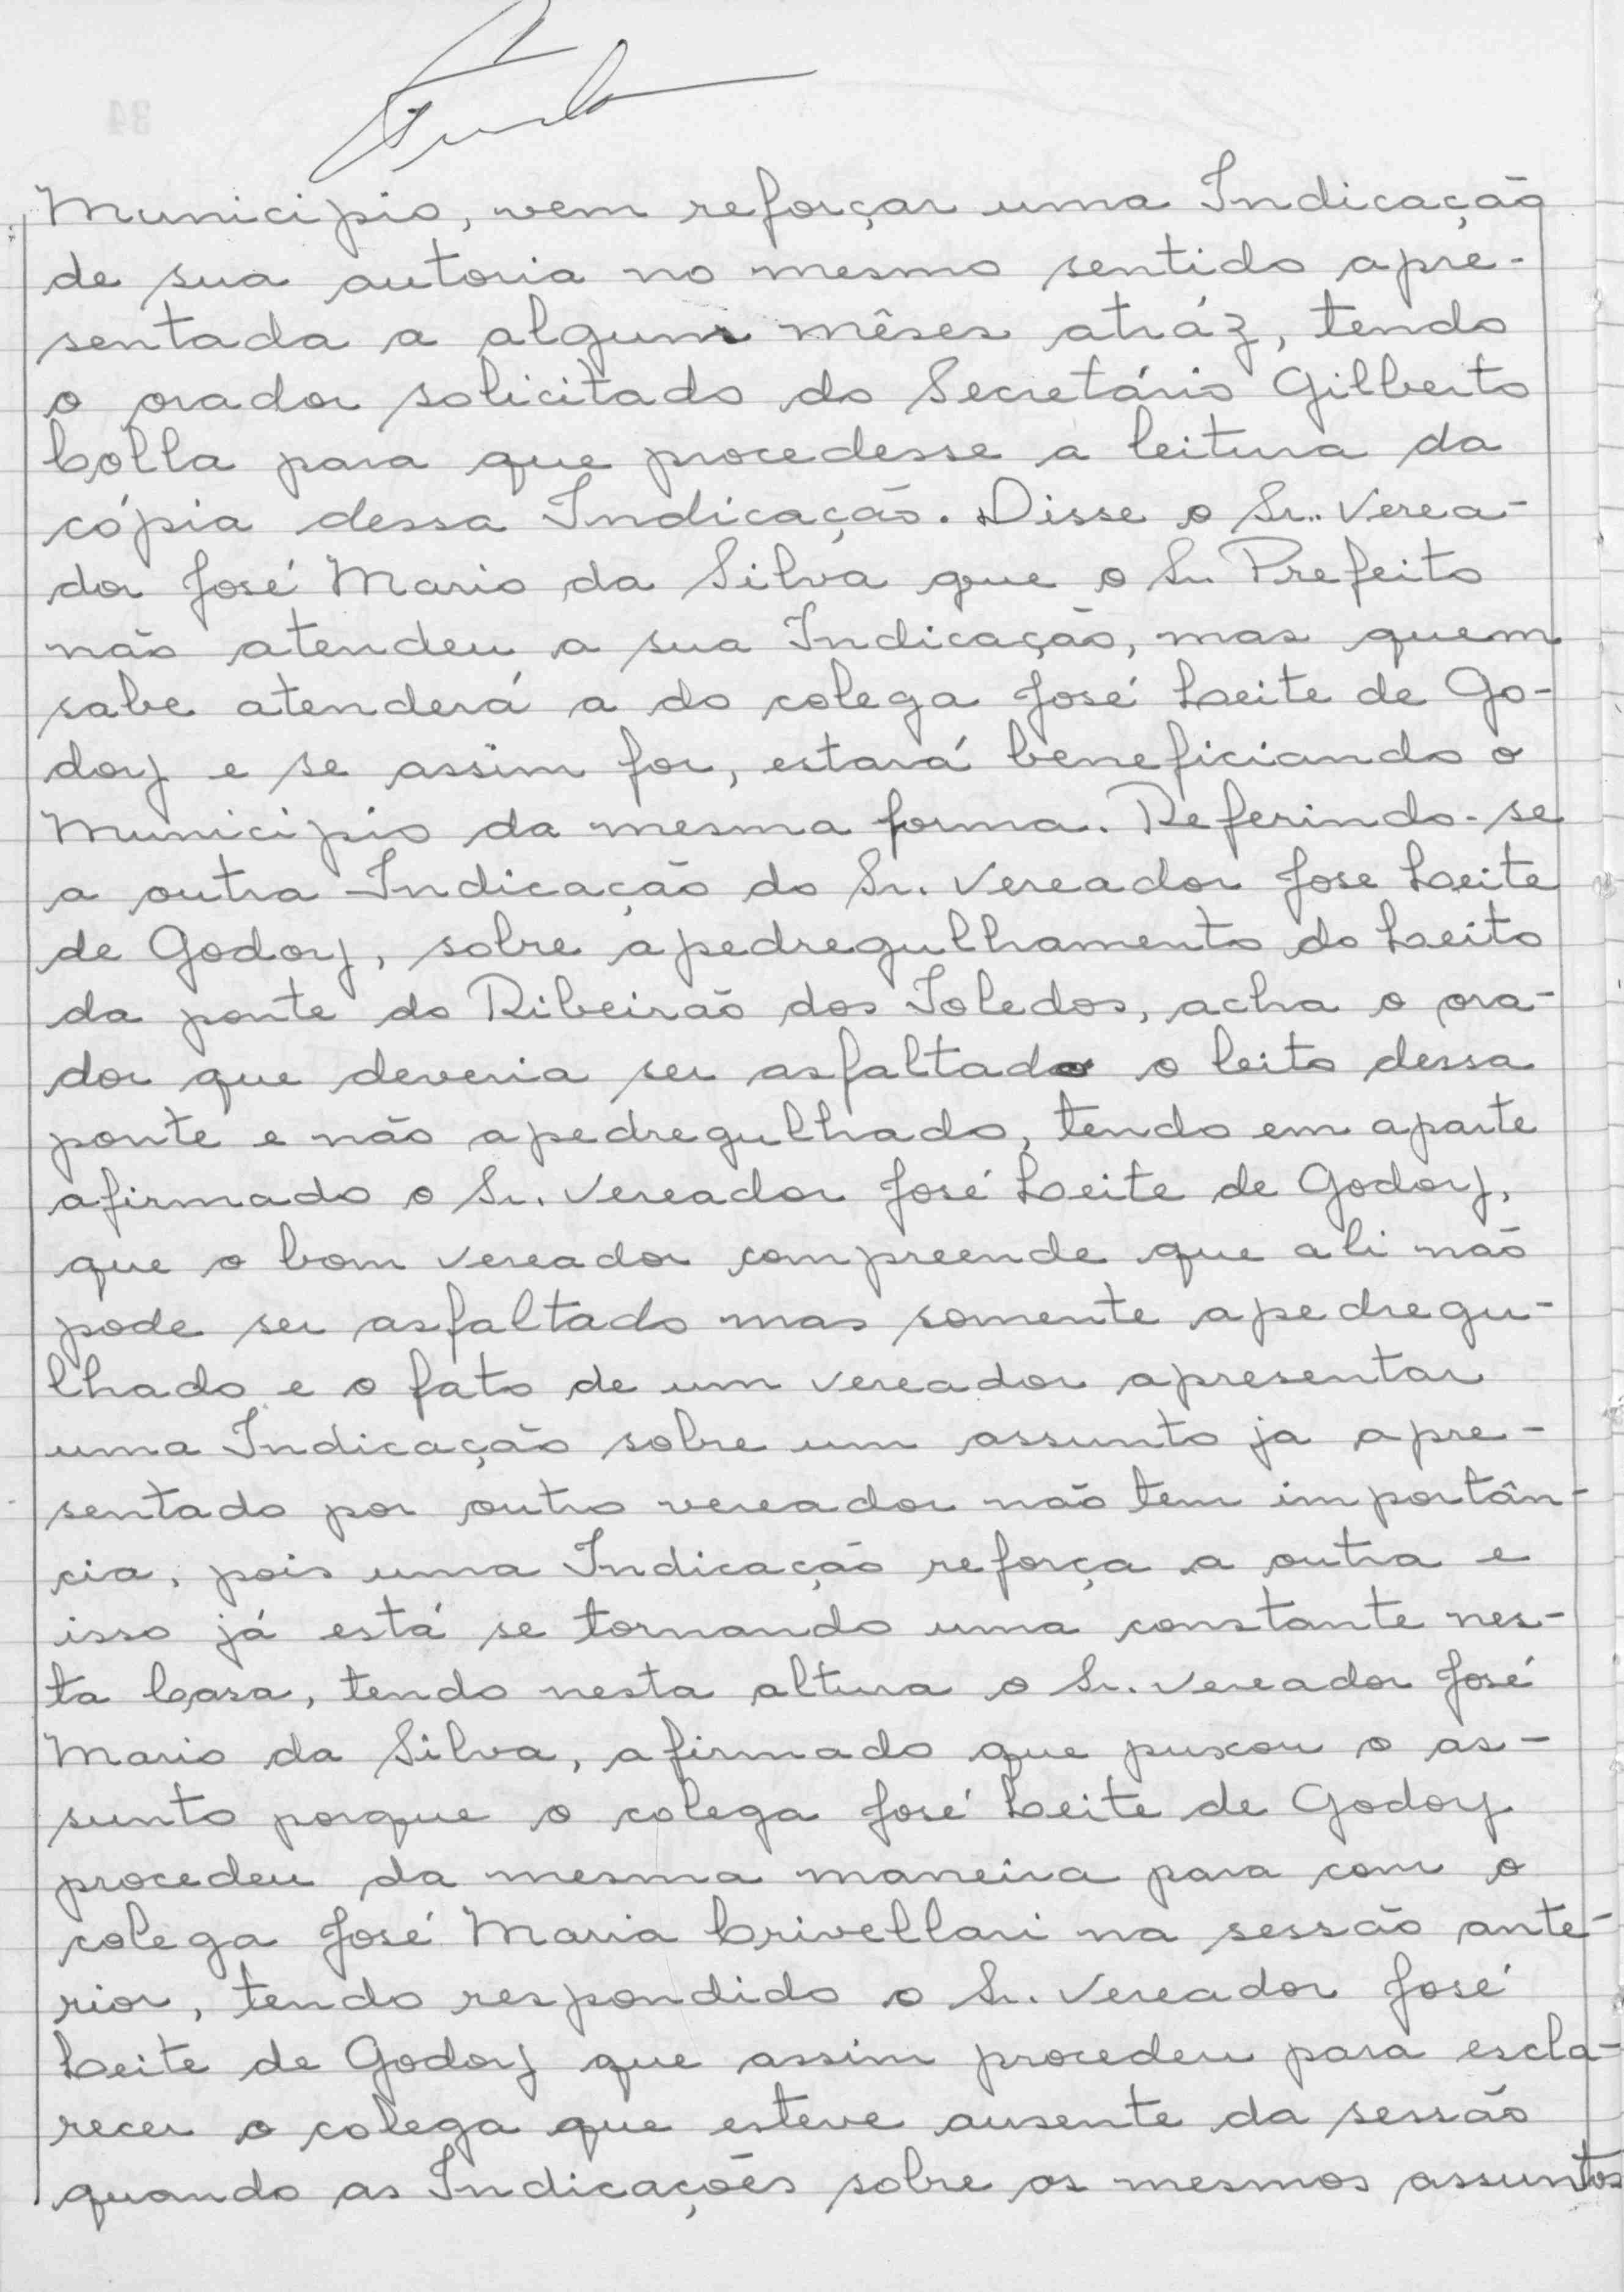 Municipio, vem reforçar uma Indicação
de sua autoria no mesmo sentido apre-
sentada a alguns mêses atráz, tendo
o orador solicitado do Secretário Gilberto
Colla para que procedesse a leitura da
cópia dessa Indicação. Disse o Sr. Verea-
dor José Mario da Silva que o Sr. Prefeito
não atendeu a sua Indicação, mas quem
sabe atenderá a do colega José Leite de Go-
doy e se assim for, estará beneficiando o
Municipio da mesma forma. Referindo-se
a outra Indicação do Sr. Vereador Jose Leite
de Godoy, sobre apedregulhamento do Leito
da ponte do Ribeirão dos Toledos, acha o ora-
dor que deveria ser asfaltado o leito dessa
ponte e não apedregulhado, tendo em aparte
afirmado o Sr. Vereador José Leite de Godoy,
que o bom vereador compreende que ali não
pode ser asfaltado mas somente apedregu-
lhado e o fato de um vereador apresentar
uma Indicação sobre um assunto ja apre-
sentado por outro vereador não tem importân-
cia, pois uma Indicação reforça a outra e
isso já está se tornando uma constante nes-
ta Casa, tendo nesta altura o Sr. Vereador José
Mario da Silva, afirmado que puxou o as-
sunto porque o colega José Leite de Godoy
procedeu da mesma maneira para com o
colega José Maria Crivellari na sessão ante-
rior, tendo respondido o Sr. Vereador José
Leite de Godoy que assim procedeu para escla-
recer o colega que esteve ausente da sessão
quando as Indicações sobre os mesmos assuntos